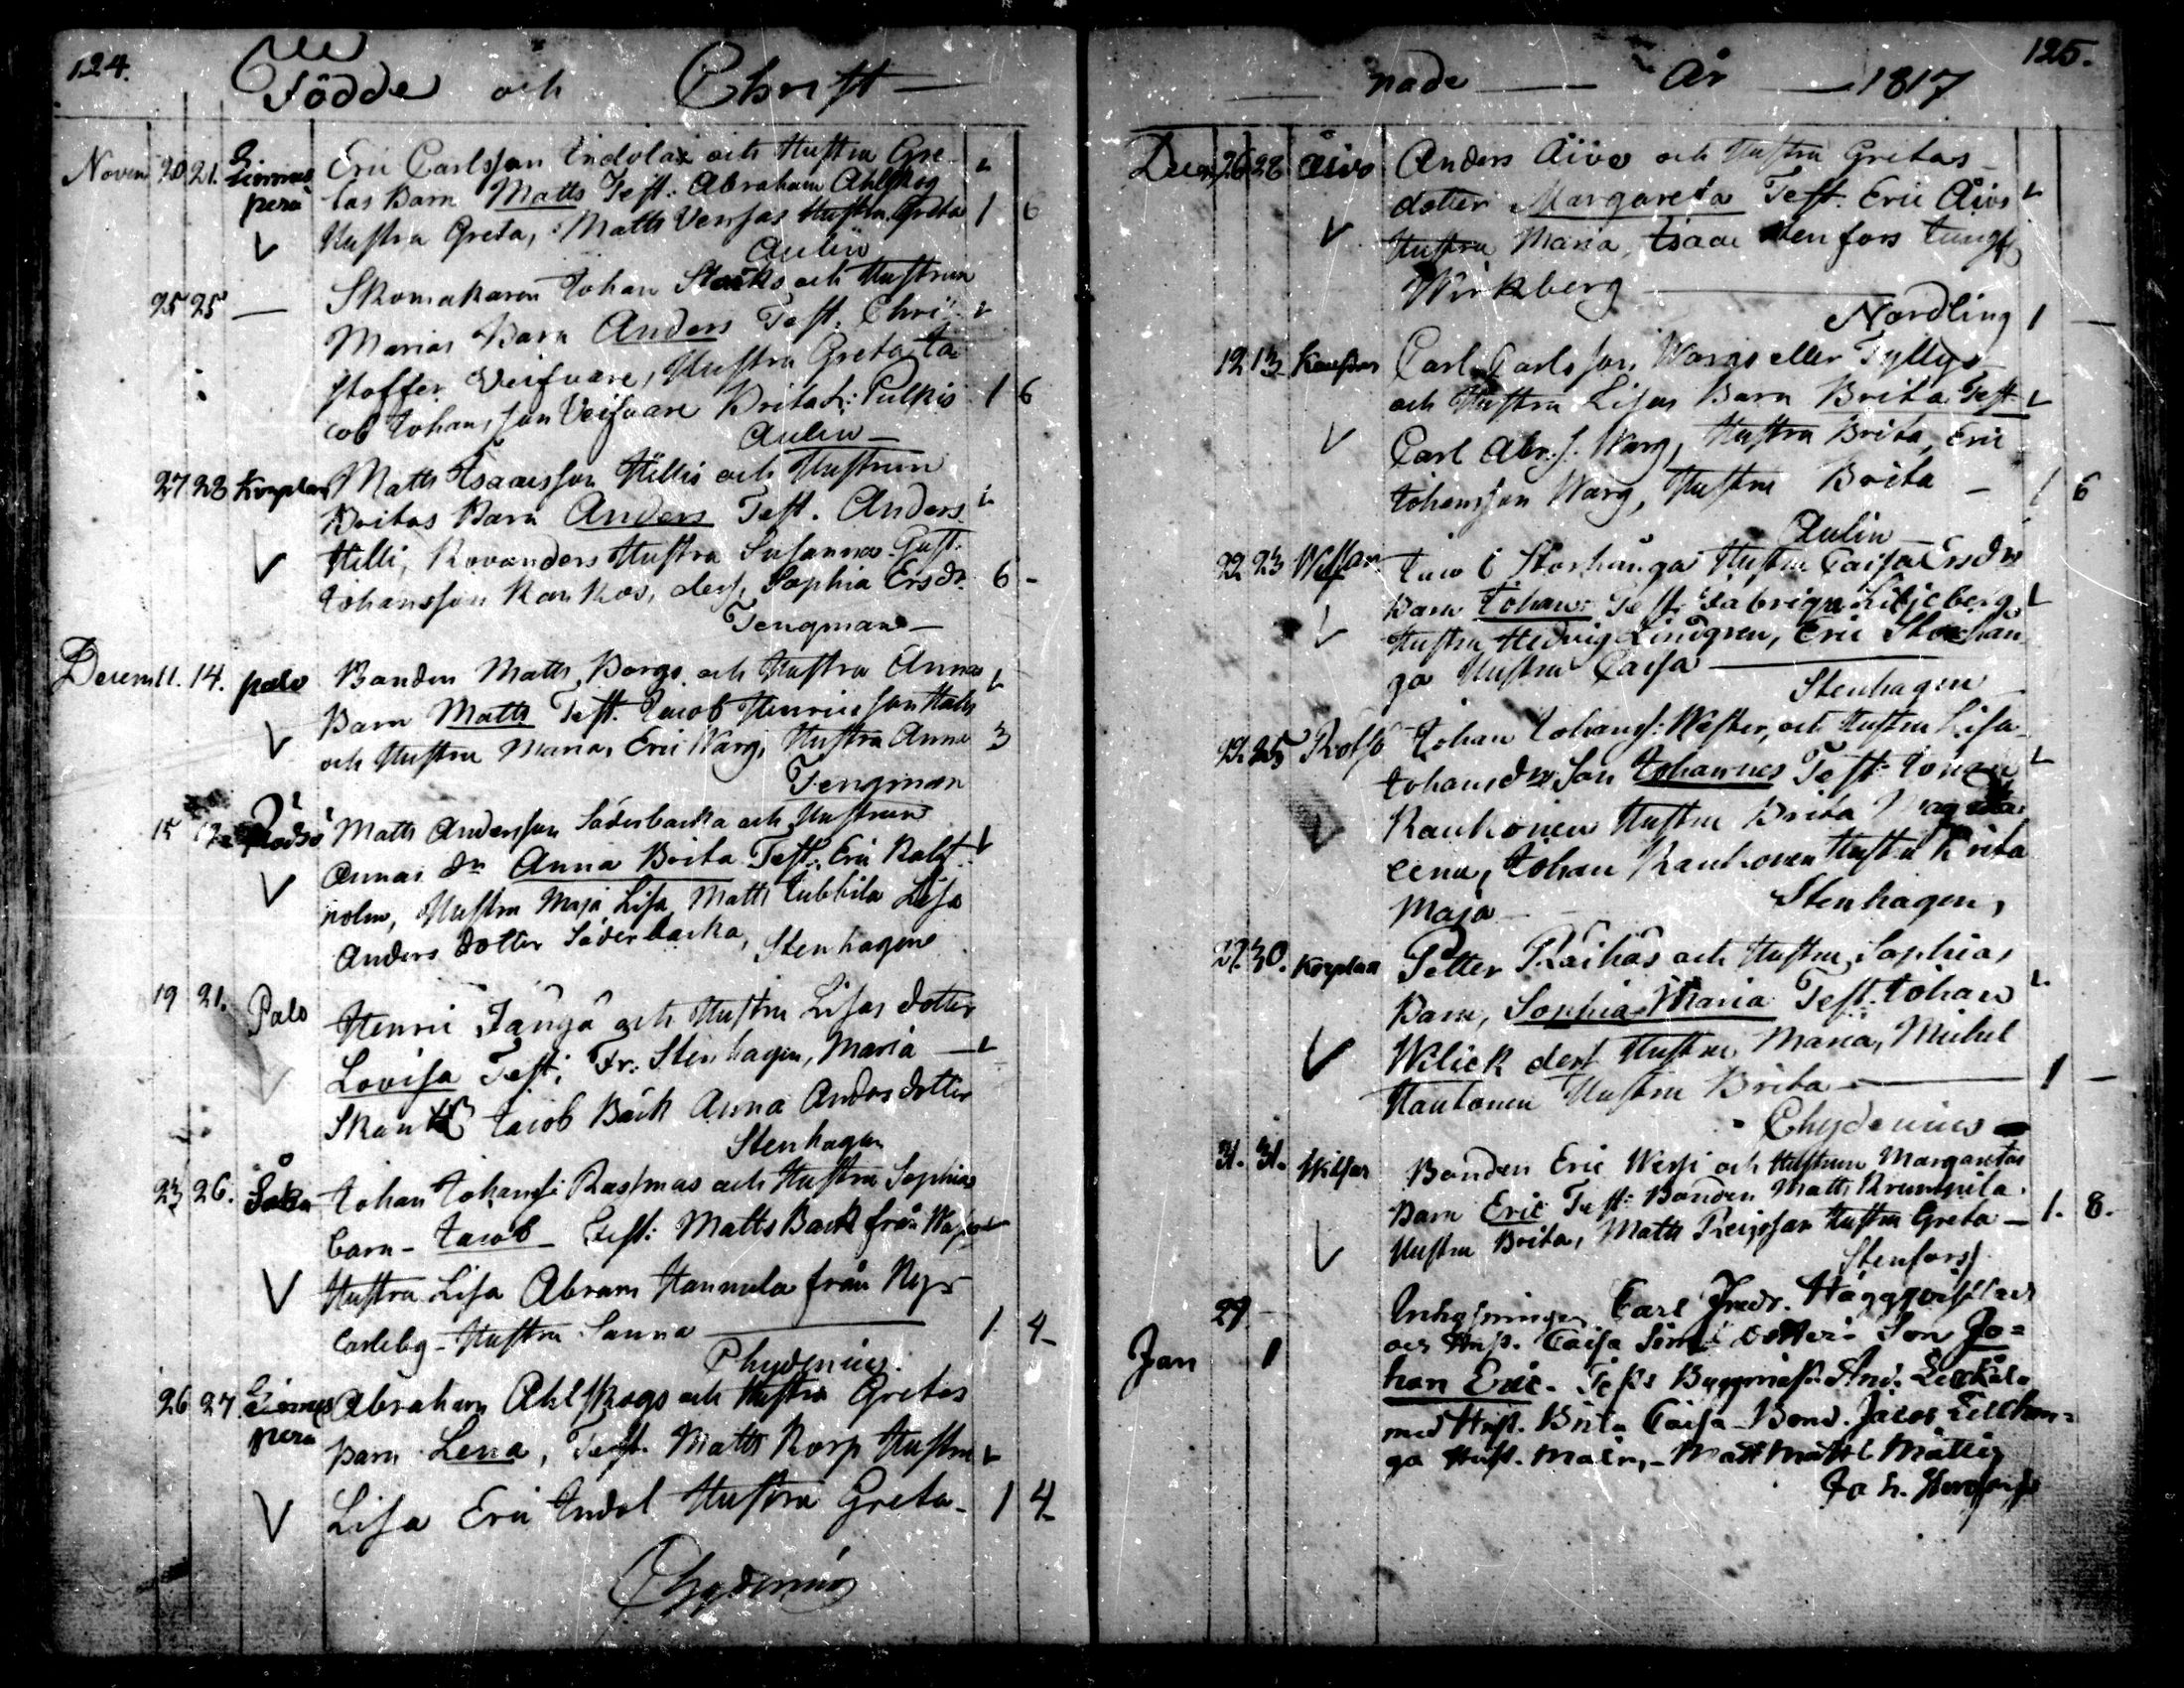 124.
Födde och Christ-
Novem 20 21. peră Eric Carlsson Indola och Hustru Gre-
tas Barn Matts Test: Abraham Ahlskog
Hustru Greta, Matts Hustru Greta 1 6
Aulin
25 25 — Skomakaren Johan och Hustrun
Marias Barn Anders Test. Chri-
stoffer Hustru Greta Ja-
cob Johansson Brita Pulkis 1 6
Aulin
27 28 Korplax Matts Isaacsson Hillis och Hustrun
Britas Barn Anders Test. Anders
Hilli, Hustru Susanna Gust.
Johansson Sophia Ersdr. 6 -
Tengman
Decem 11. 14. palo Bonden Matts och Hustru Annas
Barn Matts Test. Jacob Henricsson
och Hustru Maria, Eric Warg, Hustru Anna 3
Tengman
15 Rödsö Matts Andersson Söderbacka och Hustrun
Annas dr Anna Brita Test: Eric
holm, Hustru Maja Lisa, Matts Lisa
Anders dotter Söderbacka, Stenhagen
19 21. Palo Henric Jänga och Hustru Lisas dotter
Lovisa Test: Fr: Stenhagen, Maria —
Jacob Bäck Anna Anders dotter
Stenhagen
23 26. Såka Johan Johanss: Rasmas och Hustru Sophias
barn - Jacob - Test: Matts Back från
Hustru Lisa Abram Hannula från Ny-
Carleby - Hustru Sanna — 1. 4-
Chydenius.
26 27 perä Abraham Ahlskogs och Hustru Gretas
barn Lena, Test. Matts Korp Hustru
Lisa Eric Indol Hustru Greta- 1 4-
Chydenius
nade — År — 1817
125.
Decem 26 28 Åivo Anders Åivo och Hustru Gretas
dotter Margareta Test. Eric Åivo
Hustru Maria, Isaac Stenfors
Wirkberg
Nordling 1 —
12 13 Carl Carlsson Wargs eller Tyllys
och Hustru Lisas Barn Brita Test
Carl Abr. s. Warg, Hustru Brita, Eric
Johansson Warg, Hustru Brita - 1 6
Aulin
22 23 Jacob Storhånga Hustru Caisa Ersdrs
Barn Johan: Test: Liljeberg
Hustru Hedvig Lindgren, Eric Storhån
ga Hustru Caisa —
Stenhagen
25 Johan Johanss: Wester, och Hustru Lisa
Johansdrs Son Johannes Test: Johan
Kauhonen Hustru Brita
Johan Kauhonen Hustru Brita
Maja
Stenhagen,
27. 30. Korplax Petter Raihas och Hustru Sophias
Barn, Sophia Maria Test: Johan
Wilick Hustru Maria, Michel
Hautonen Hustru Brita — 1 —
Chydenius
31. 31. Bonden Eric och Hustrun Margaretas
Barn Eric Test: Bonden Matts Krumpila
Hustru Brita, Matts Hustru Greta — 1. 8.
Stenfors
29 - Jan 1 Inhysningen Carl Fredr. Häggqvist
och Hust. Caisa dotters Son Jo=
han Eric. Test:
med Hust. Brita Caisa Bond. Jacob
ga Hust. Malin, - Matts